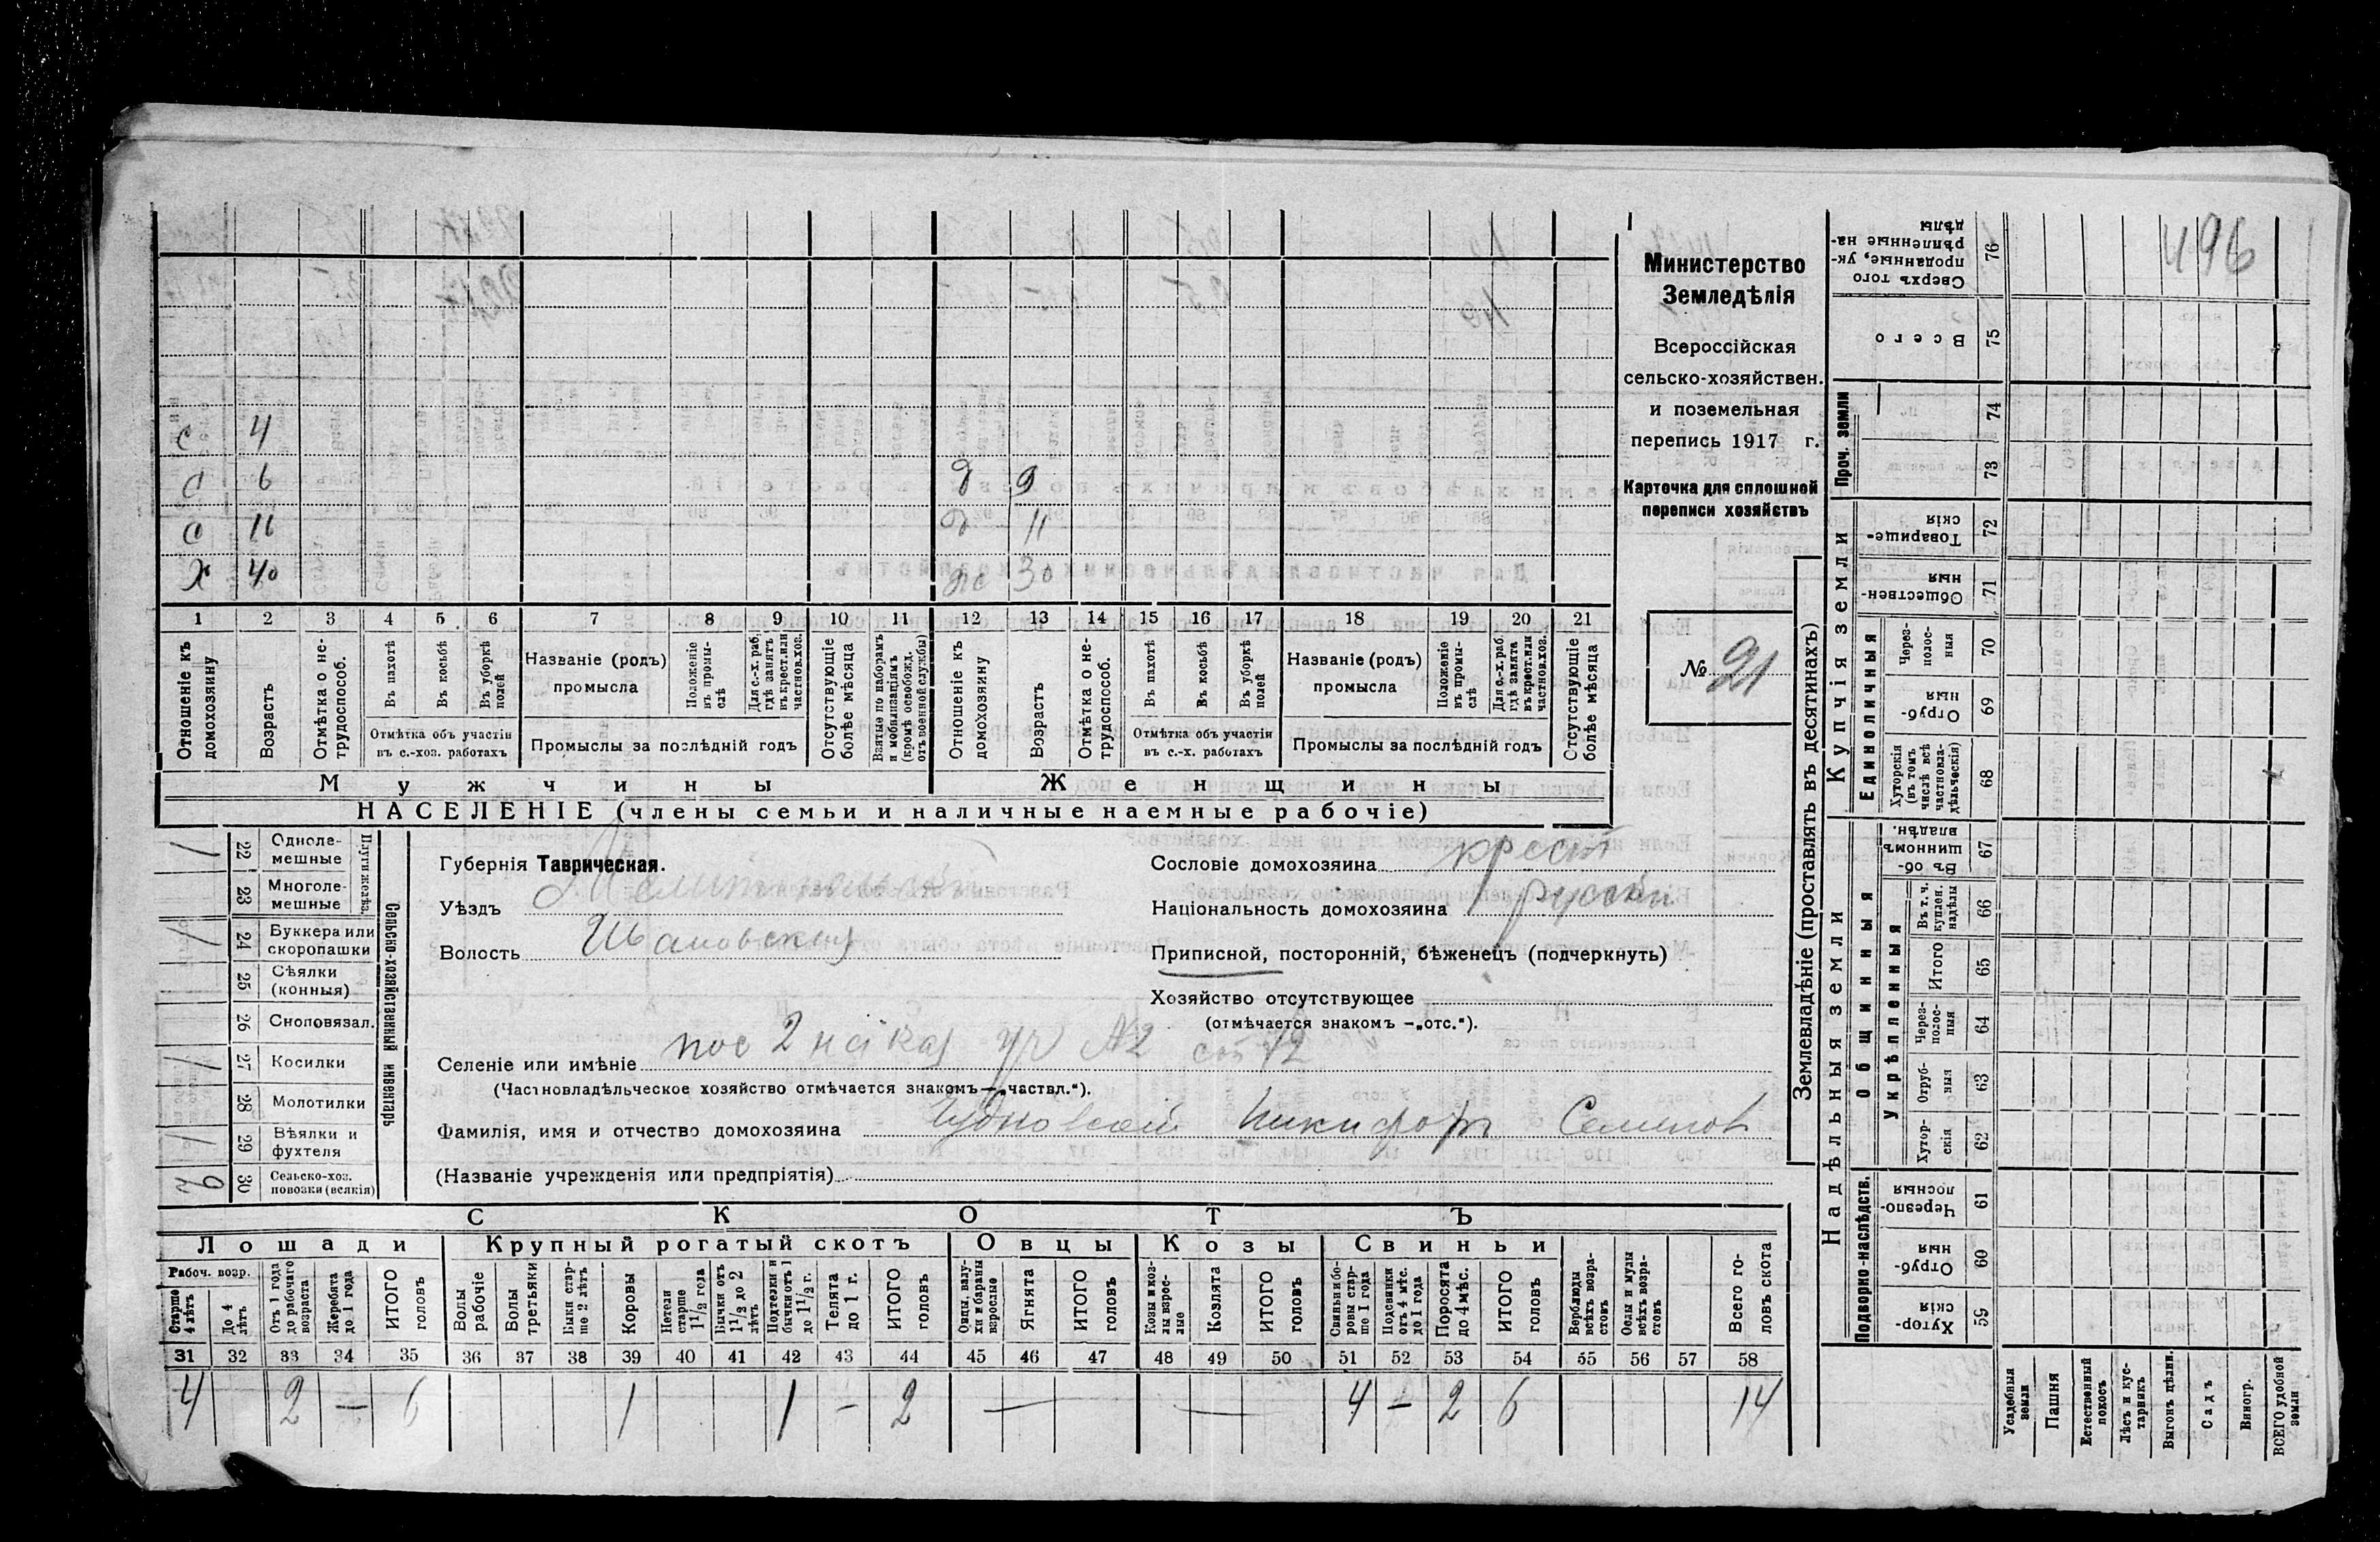 496
Министерство
Земледѣлія
Всероссійская
сельско-хозяйствен.
и поземельная
перепись 1917 г.
Карточка для сплошной
переписи хозяйствъ
№ 21
с 4
с 6 д 9
с 11 д 11
х 40 30
1 2 3 4 5 6 7 8 9 10 11 12 13 14 15 16 17 18 19 20 21
Отношеніе къ домохозяину
Возрастъ
Отмѣтка о не-трудоспособ.
Въ пахотѣ
Въ косьбѣ
Въ уборкѣ полей
Отмѣтка объ участіи въ с.-хоз. работахъ
Названіе (родъ) промысла
Положеніе въ промы-слѣ
Для с.-х. раб. гдѣ занятъ въ крест. или частнов. хоз.
Промыслы за послѣдній годъ
Отсутствующіе болѣе мѣсяца
Взятые по наборамъ и мобилизаціямъ (кромѣ освобожд. отъ военной службы)
Отношеніе къ домохозяину
Возрастъ
Отмѣтка о не-трудоспособ.
Въ пахотѣ
Въ косьбѣ
Въ уборкѣ полей
Отмѣтка объ участіи въ с.-х. работахъ
Названіе (родъ) промысла
Положеніе въ промы-слѣ
Для с.-х. раб. гдѣ занята въ крест. или частнов. хоз.
Промыслы за послѣдній годъ
Отсутствующіе болѣе мѣсяца
Мужчины Женщины
НАСЕЛЕНІЕ (члены семьи и наличные наемные рабочіе)
Сельско-хозяйственный инвентарь
Плуги желѣз.
1 22 Одноле-мешные
23 Многоле-мешные
1 24 Буккера или скоропашки
25 Сѣялки (конныя)
26 Сноповязал.
1 27 Косилки
28 Молотилки
1 29 Вѣялки и фухтеля
30 Сельско-хоз. повозки (всякія)
Губернія Таврическая.
Уѣздъ Мелитопольскій
Волость
Сословіе домохозяина крест
Національность домохозяина русскій
Приписной, посторонній, бѣженецъ (подчеркнуть)
Хозяйство отсутствующее
(отмѣчается знакомъ —„отс.“).
Селеніе или имѣніе пос 2 №2
(Частновладѣльческое хозяйство отмѣчается знакомъ—„частвл.“).
Фамилія, имя и отчество домохозяина Чудновской Никифоръ Семенов
(Названіе учрежденія или предпріятія)
СКОТЪ
Лошади Крупный рогатый скотъ Овцы Козы Свиньи
Рабоч. возр.
Старше 4 лѣтъ
До 4 лѣтъ
Отъ 1 года до рабочаго возраста
Жеребята до 1 года
ИТОГО головъ
Волы рабочіе
Волы третьяки
Быки стар-ше 2 лѣтъ
Коровы
Нетели старше 1 1/2 года
Бычки отъ 1 1/2 до 2 лѣтъ
Подтелки и бычки отъ 1 до 1 1/2 г.
Телята до 1 г.
ИТОГО головъ
Овцы, валу-хи и бараны взрослые
Ягнята
ИТОГО головъ
Козы и коз-лы взрос-лые
Козлята
ИТОГО головъ
Свиньи и бо-ровы стар-ше 1 года
Подсвинки отъ 4 мѣс. до 1 года
Поросята до 4 мѣс.
ИТОГО головъ
Верблюды всѣхъ возра-стовъ
Ослы и мулы всѣхъ возра-стовъ
Всего го-ловъ скота
31 32 33 34 35 36 37 38 39 40 41 42 43 44 45 46 47 48 49 50 51 52 53 54 55 56 57 58
4 2 — 6 1 1 — 2 — — 4 — 2 6 14
Землевладѣніе (проставлять въ десятинахъ)
Надѣльныя земли Купчія земли Проч. земли
Подворно-наслѣдств. Общинныя Единоличныя
Укрѣпленныя
Хутор-скія 59
Отруб-ныя 60
Черезпо-лосныя 61
Хутор-скія 62
Отруб-ныя 63
Через-полос-ныя 64
Итого 65
Въ т. ч. куплен. надѣлы 66
Въ об-щинномъ владѣн. 67
Хуторскія (въ томъ числѣ всѣ частновла-дѣльческія) 68
Отруб-ныя 69
Через-полос-ныя 70
Обществен-ныя 71
Товарище-скія 72
73
74
Всего 75
Сверхъ того проданные, ук-рѣпленные на-дѣлы 76
Усадебныя земли
Пашня
Естественный покосъ
Лѣсъ и кус-тарникъ
Выгонъ цѣлин.
Садъ
Виногр.
ВСЕГО удобной земли